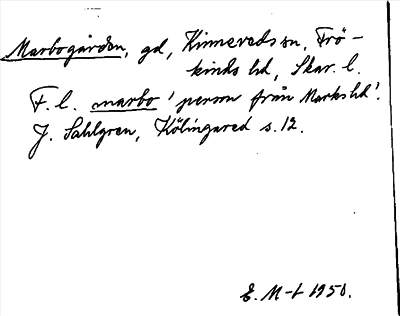 Marbogården, gd, Kinneveds sn, Frö-
kinds hd, Skar. l.
F. l. marbo 'person från Marks hd'.
J. Sahlgren, Kölingared s. 12.
E. M-t 1950.